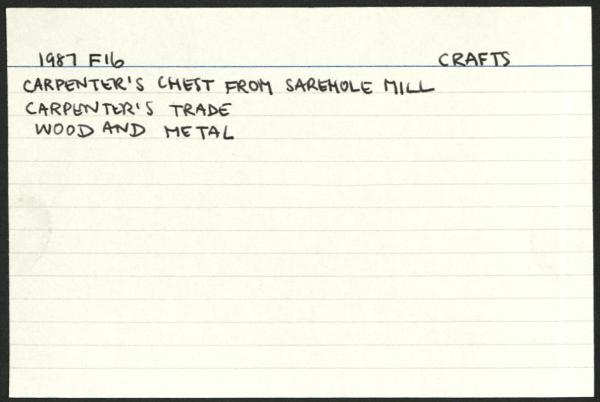 1987 F16 CRAFTS
CARPENTER'S CHEST FROM SAREHOLE MILL
CARPENTER'S TRADE
WOOD AND METAL